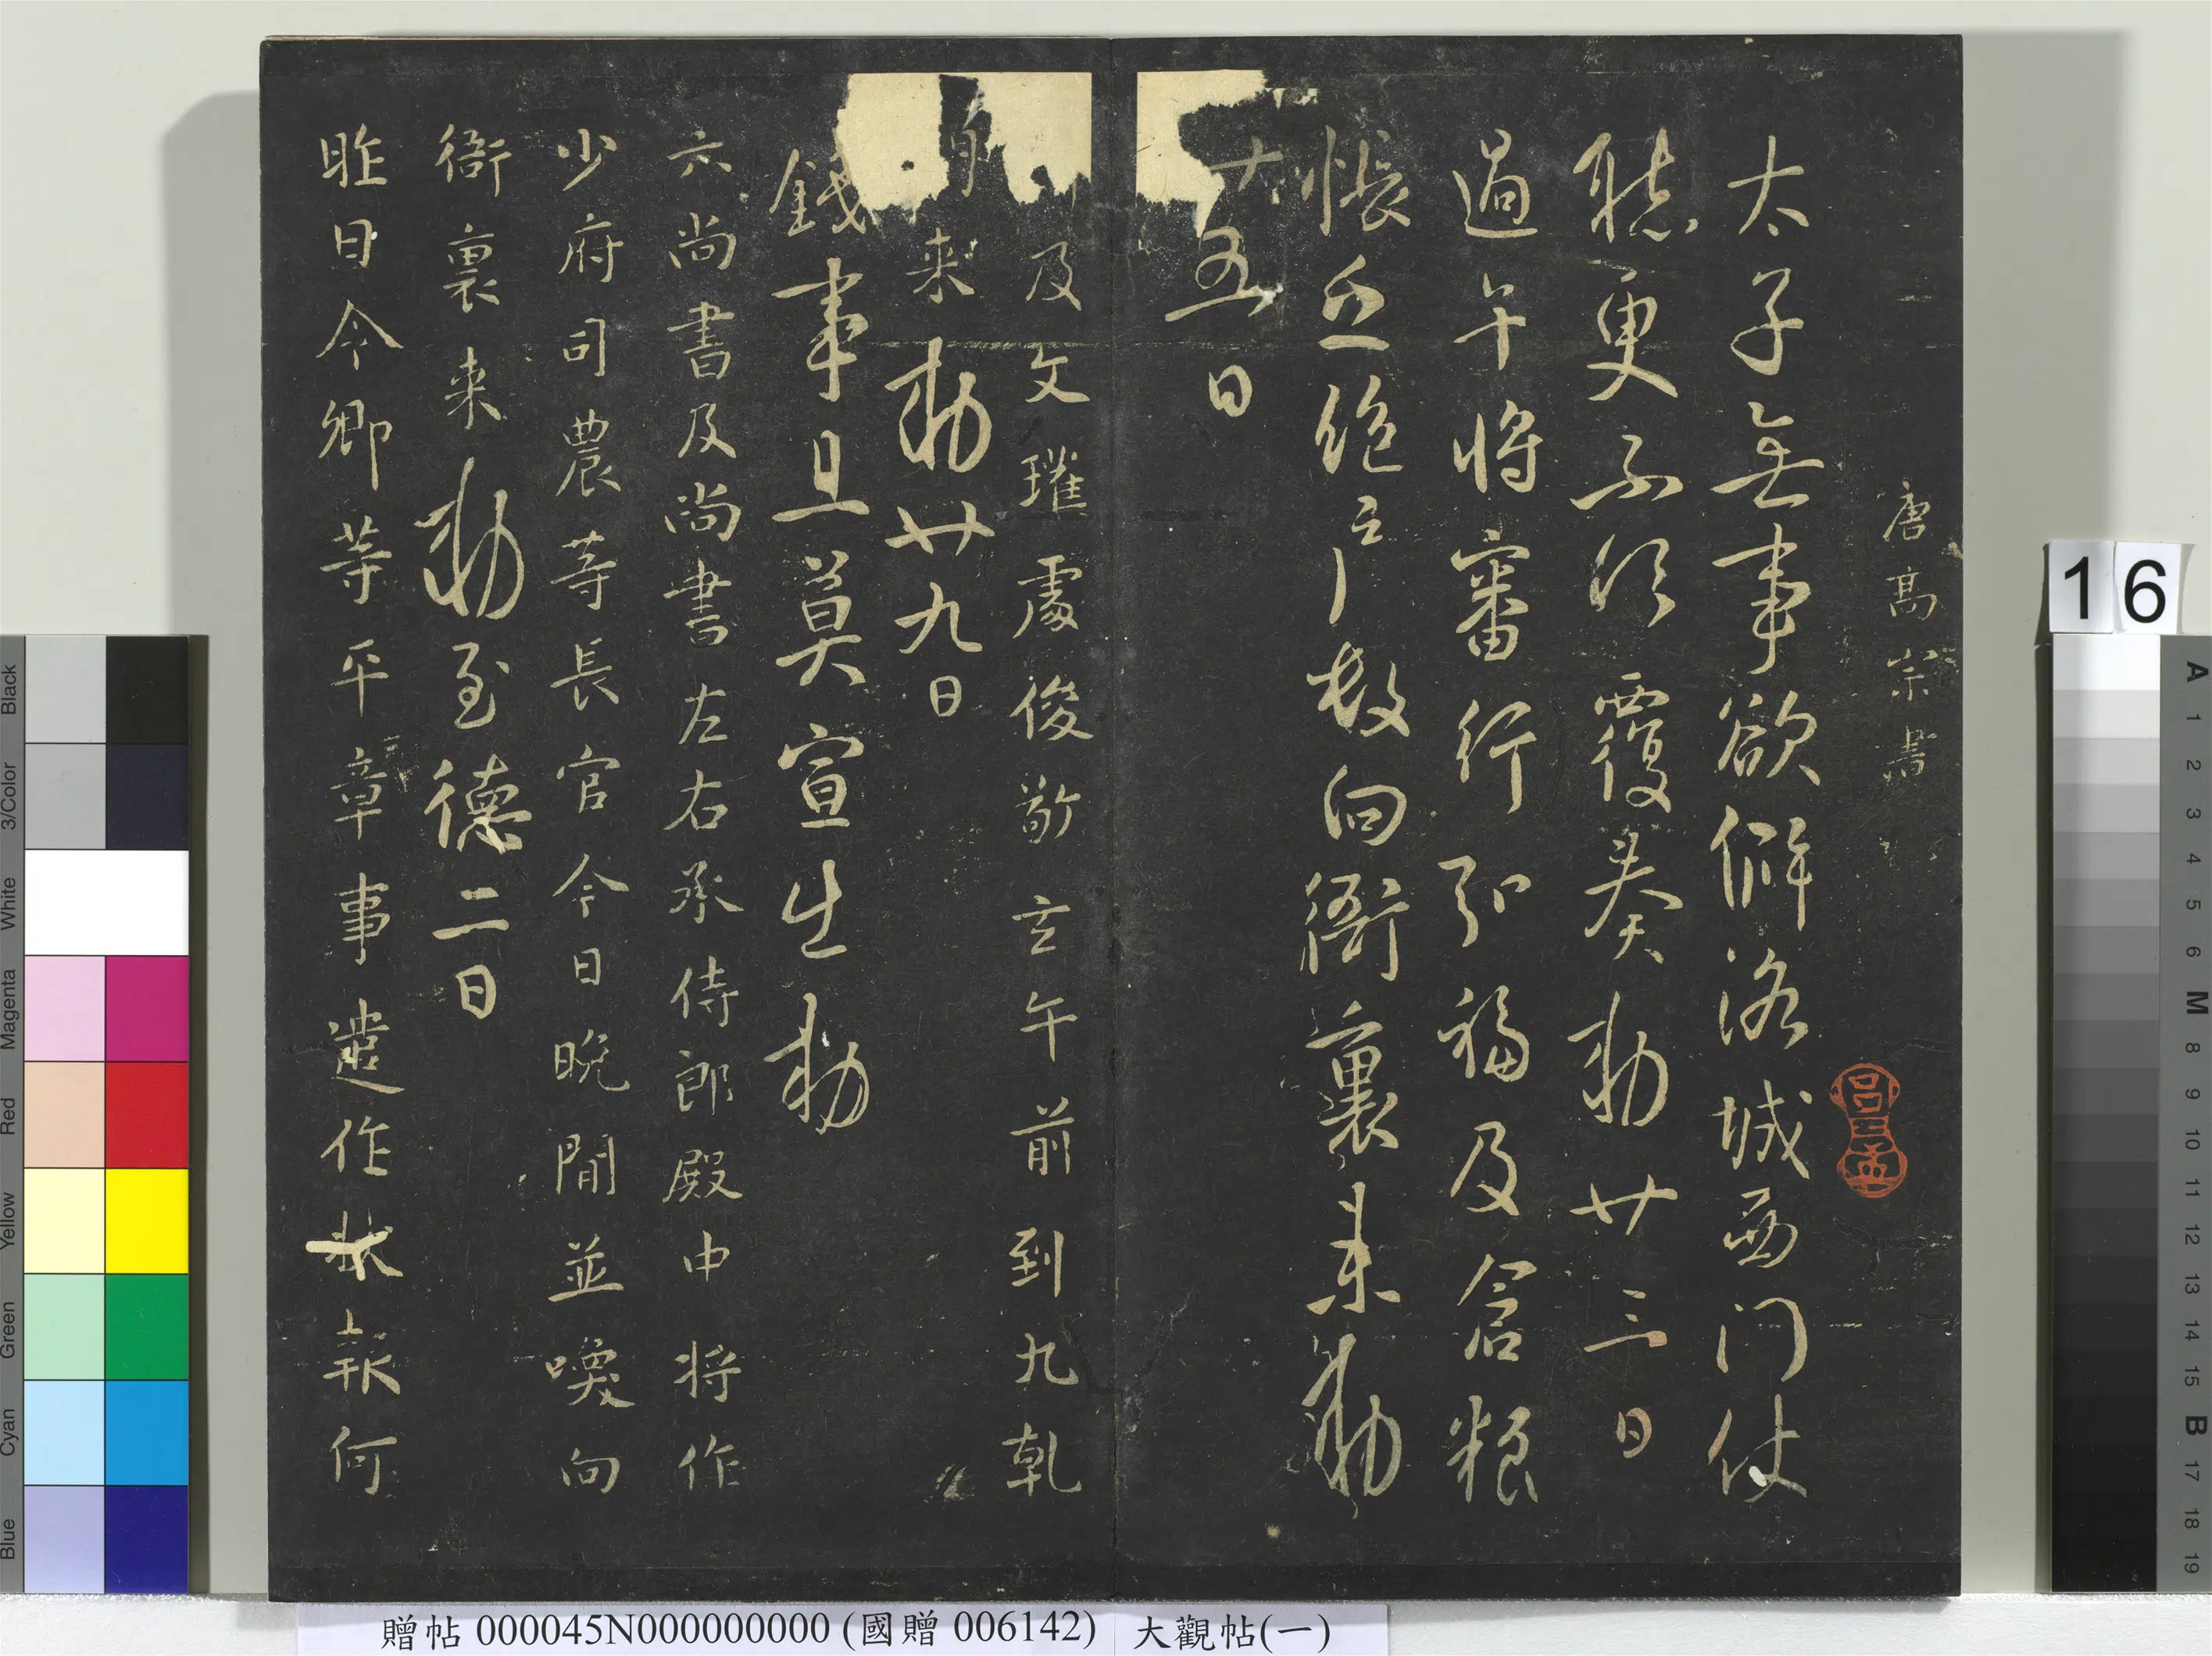 唐髙宗書
太子無事欲假洛城西门仗
聴更不須覆奏勅廿三日
過午將審行弘福及倉粮
帳並絶戶數向衙裏来勅
十五日
及文瓘處俊敬玄午前到九乹
来勅廿九日
錢事且莫宣出勅
六尚書及尚書左右丞侍郎殿中将作
少府司農等長官今日晩間並喚向
衙裏来勅至德二日
昨日令卿等平章事遣作状報何
16
贈帖 000045N000000000 (國贈 006142) 大觀帖(一)
Black
3/Color
White
Magenta
Red
Yellow
Green
Cyan
Blue
A
1
2
3
4
5
6
M
8
9
10
11
12
13
14
15
B
17
18
19